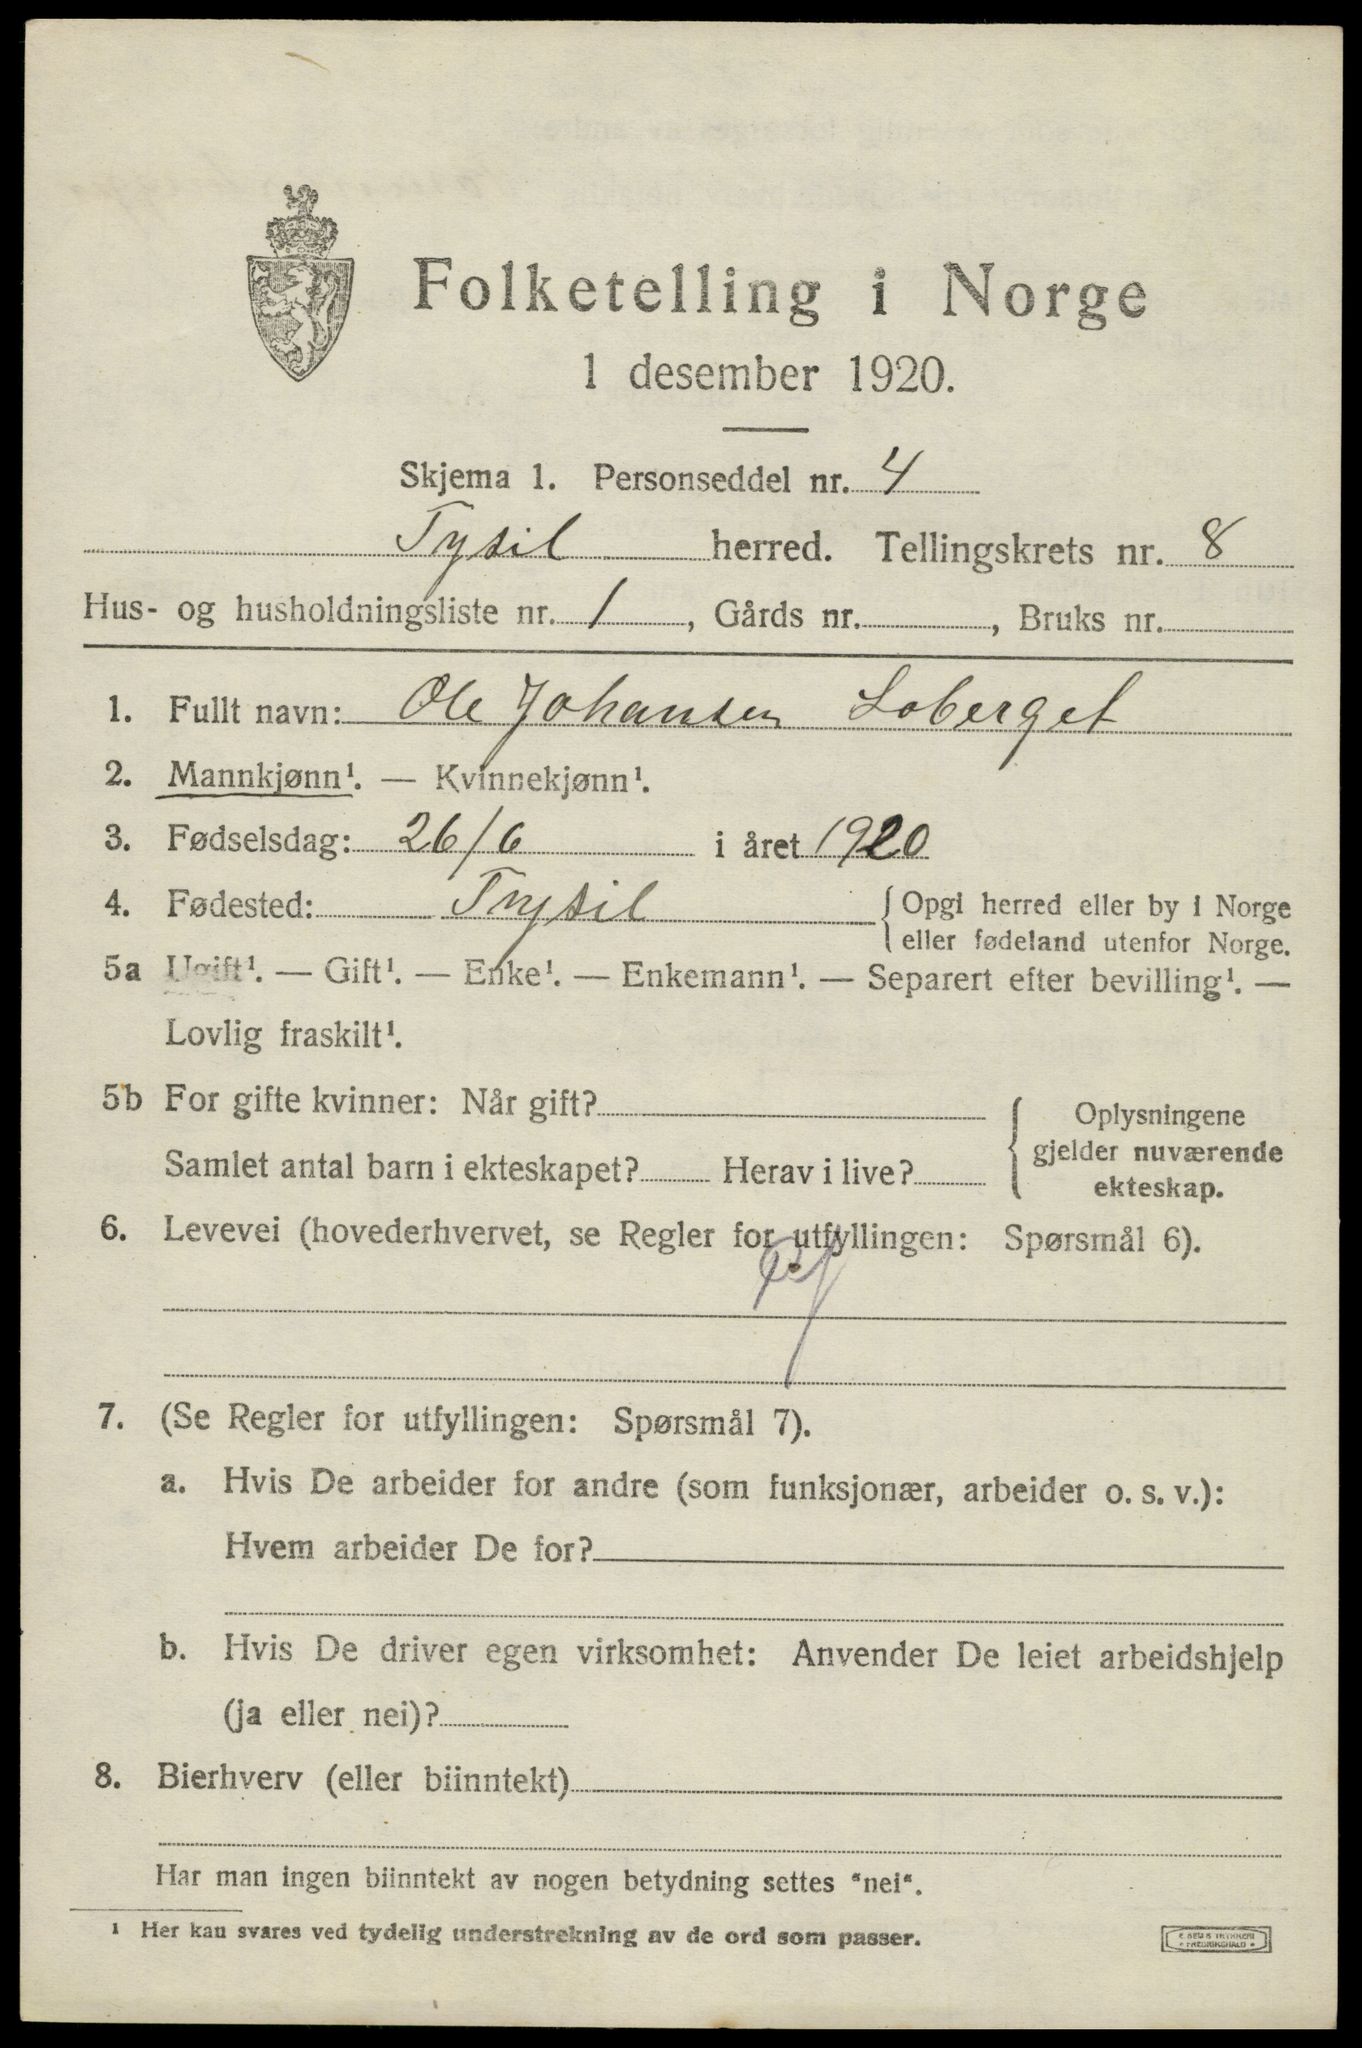 Folketelling i Norge
1 desember 1920.
Skjema 1. Personseddel nr. 4
Tysil herred. Tellingskrets nr. 8
Hus- og husholdningsliste nr. 1, Gårds nr. , Bruks nr.
1. Fullt navn: Ole Johansen Loberget
2. Mannkjønn¹. — Kvinnekjønn¹.
3. Fødselsdag: 26/6 i året 1920
4. Fødested: Trysil { Opgi herred eller by i Norge
eller fødeland utenfor Norge.
5a Ugift¹. — Gift¹. — Enke¹. — Enkemann¹. — Separert efter bevilling¹. —
Lovlig fraskilt¹.
5b For gifte kvinner: Når gift?
Samlet antal barn i ekteskapet? Herav i live?
{ Oplysningene
gjelder nuværende
ekteskap.
6. Levevei (hovederhvervet, se Regler for utfyllingen: Spørsmål 6).
7. (Se Regler for utfyllingen: Spørsmål 7).
a. Hvis De arbeider for andre (som funksjonær, arbeider o. s. v.):
Hvem arbeider De for?
b. Hvis De driver egen virksomhet: Anvender De leiet arbeidshjelp
(ja eller nei)?
8. Bierhverv (eller biinntekt)
Har man ingen biinntekt av nogen betydning settes "nei".
¹ Her kan svares ved tydelig understrekning av de ord som passer.